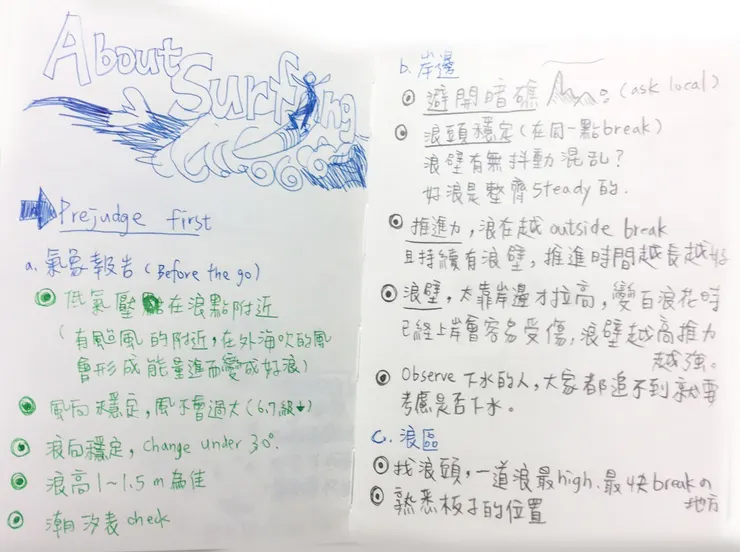 About
Surfing
Prejudge first
a. 氣象報告 (Before the go)
低氣壓 在浪點附近
(有颱風的附近,在外海吹的風
會形成能量進而變成好浪)
風向穩定,風不會過大(6.7級↓)
浪向穩定, change under 30°.
浪高1~1.5m為佳
潮汐表 check
b. 岸邊
避開暗礁 (ask local)
浪頭穩定(在同一點break)
浪壁有無抖動混乱?
好浪是整齊 Steady 的.
推進力,浪在越 outside break
且持續有浪壁,推進時間越長越好
浪壁,太靠岸邊才拉高,變白浪花時
已經上岸會容易受傷,浪壁越高推力
越強。
Observe 下水的人,大家都追不到就要
考慮是否下水。
C. 浪區
找浪頭,一道浪最high.最快break的
地方
熟悉板子的位置